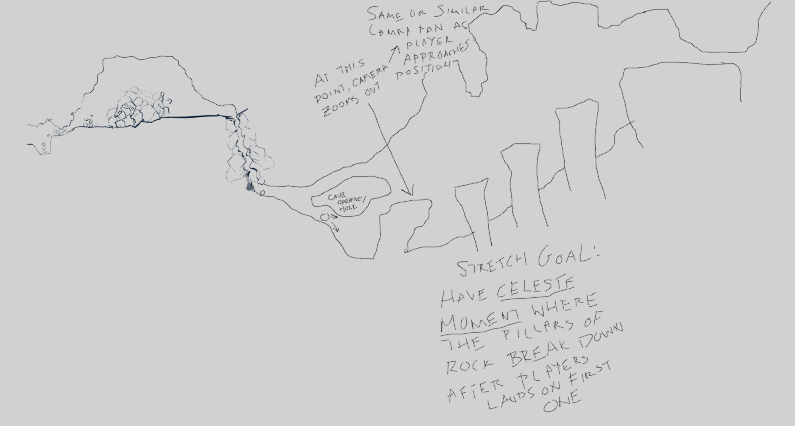 SAME OR SIMILAR
CAMRA PAN AS
PLAYER
APPROACHES
POSITION
AT THIS
POINT, CAMERA
ZOOMS OUT
CAVE
OPENING/
HOLE
STRETCH GOAL:
HAVE CELESTE
MOMENT WHERE
THE PILLARS OF
ROCK BREAK DOWN
AFTER PLAYERS
LANDS ON FIRST
ONE